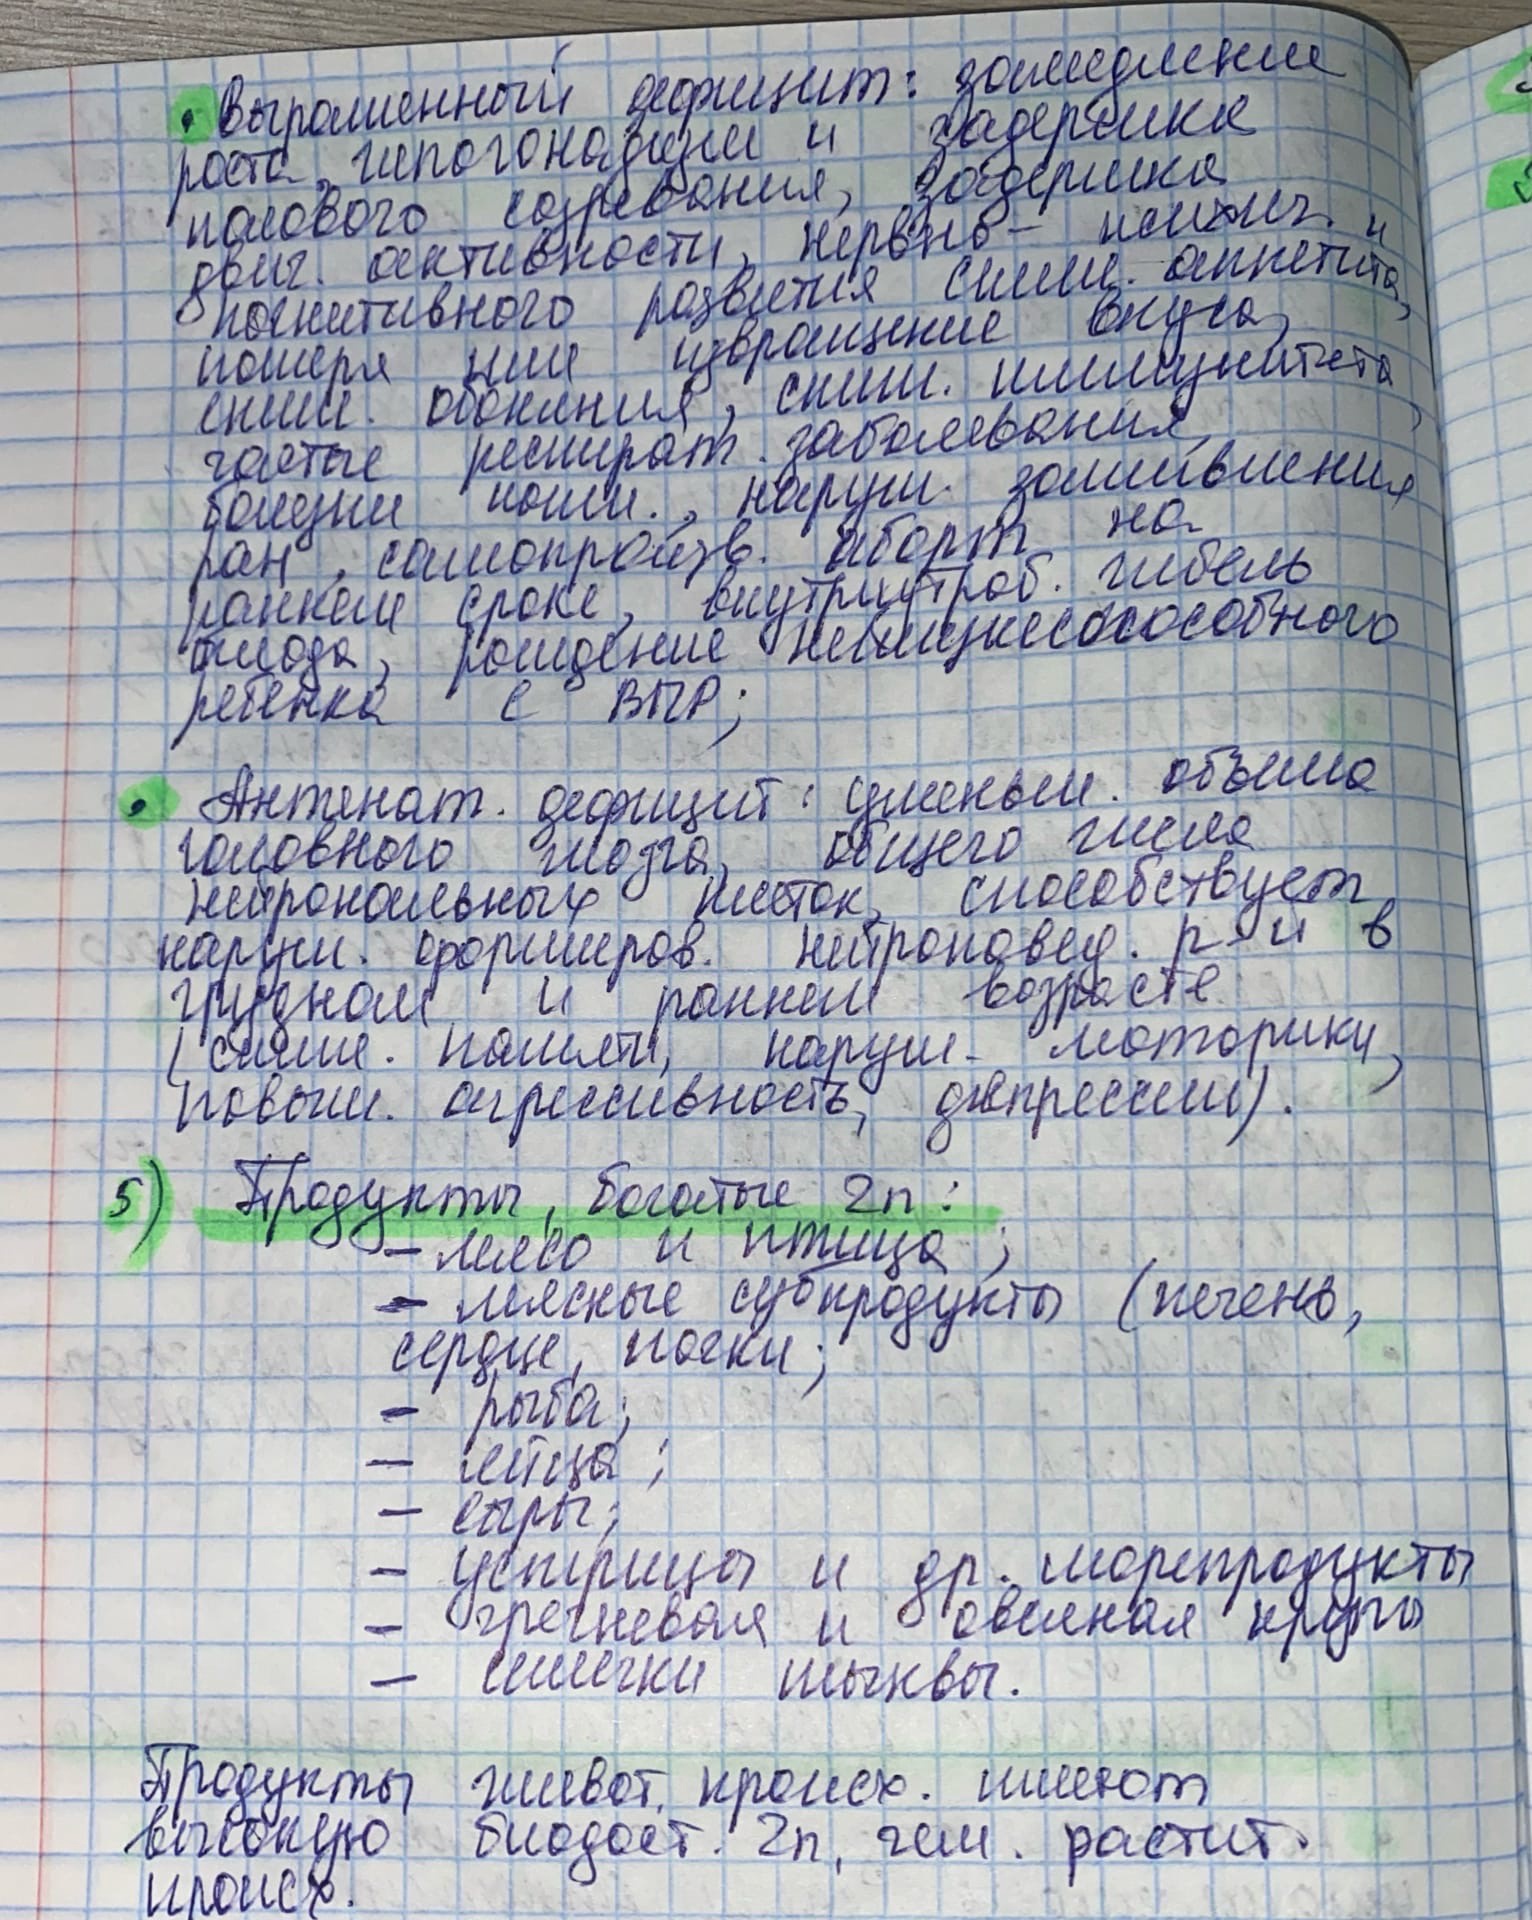 • Выраженный дефицит: замедление
роста, гипогонадизм и задержка
полового созревания, задержка
двиг. активности, нервно-психич. и
когнитивного развития сниж. аппетита,
потеря или извращение вкуса,
сниж. обоняния, сниж. иммунитета,
частые респират. заболевания,
болезни кожи., наруш. заживления
ран, самопроизв. аборт на
раннем сроке, внутриутроб. гибель
плода, рождение нежизнеспособного
ребенка с ВПР;
• Антенат. дефицит: уменьш. объема
головного мозга, общего числа
нейрональных клеток, способствует
наруш. сформиров. нейроповед. р-й в
грудном и раннем возрасте
(сниж. памяти, наруш. моторики,
повыш. агрессивность, депрессии).
5) Продукты, богатые Zn:
- мясо и птица;
- мясные субпродукты (печень,
сердце, почки;
- рыба;
- яйца;
- сыры;
- устрицы и др. морепродукты
- гречневая и овсяная крупы
- семечки тыквы.
Продукты живот. происх. имеют
высокую биодост. Zn, чем. растит.
происх.